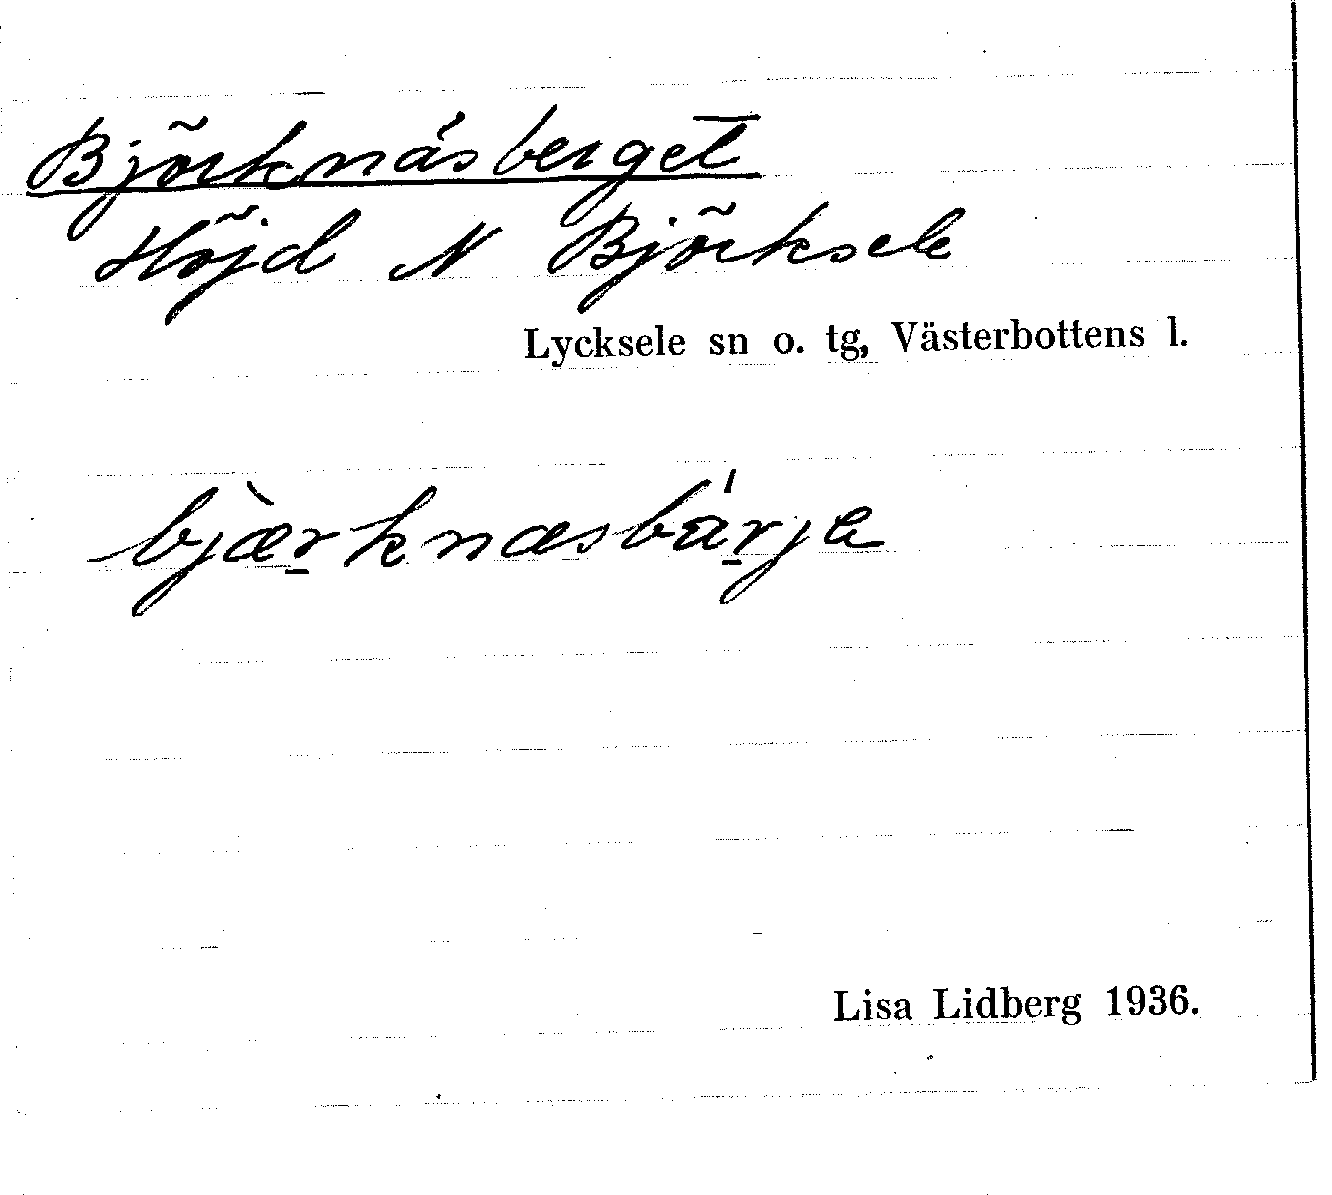 Björknäsberget
Höjd N Björksele
Lycksele sn o. tg, Västerbottens l.
bjæ̀rknæsbárja
Lisa Lidberg 1936.